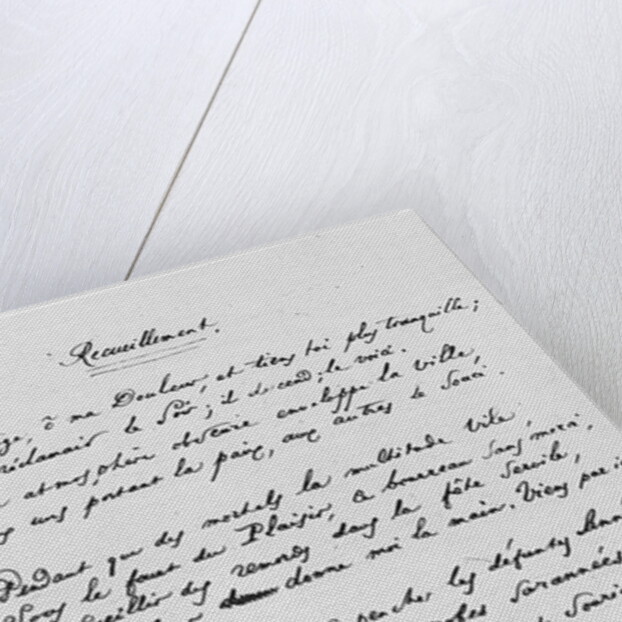 Recueillement.
ge, ô ma Douleur, et tiens toi plus tranquille;
réclamais le Soir; il descend; le voici.
atmosphère obscure enveloppe la ville,
uns portant la paix, aux autres le souci.
Pendant que des mortels la multitude vile
Sous le fouet du Plaisir, ce bourreau sans merci,
eillir des remords dans la fête servile,
donne moi la main. Viens par i
pencher les défuntes Ann
robes surannées
Souri